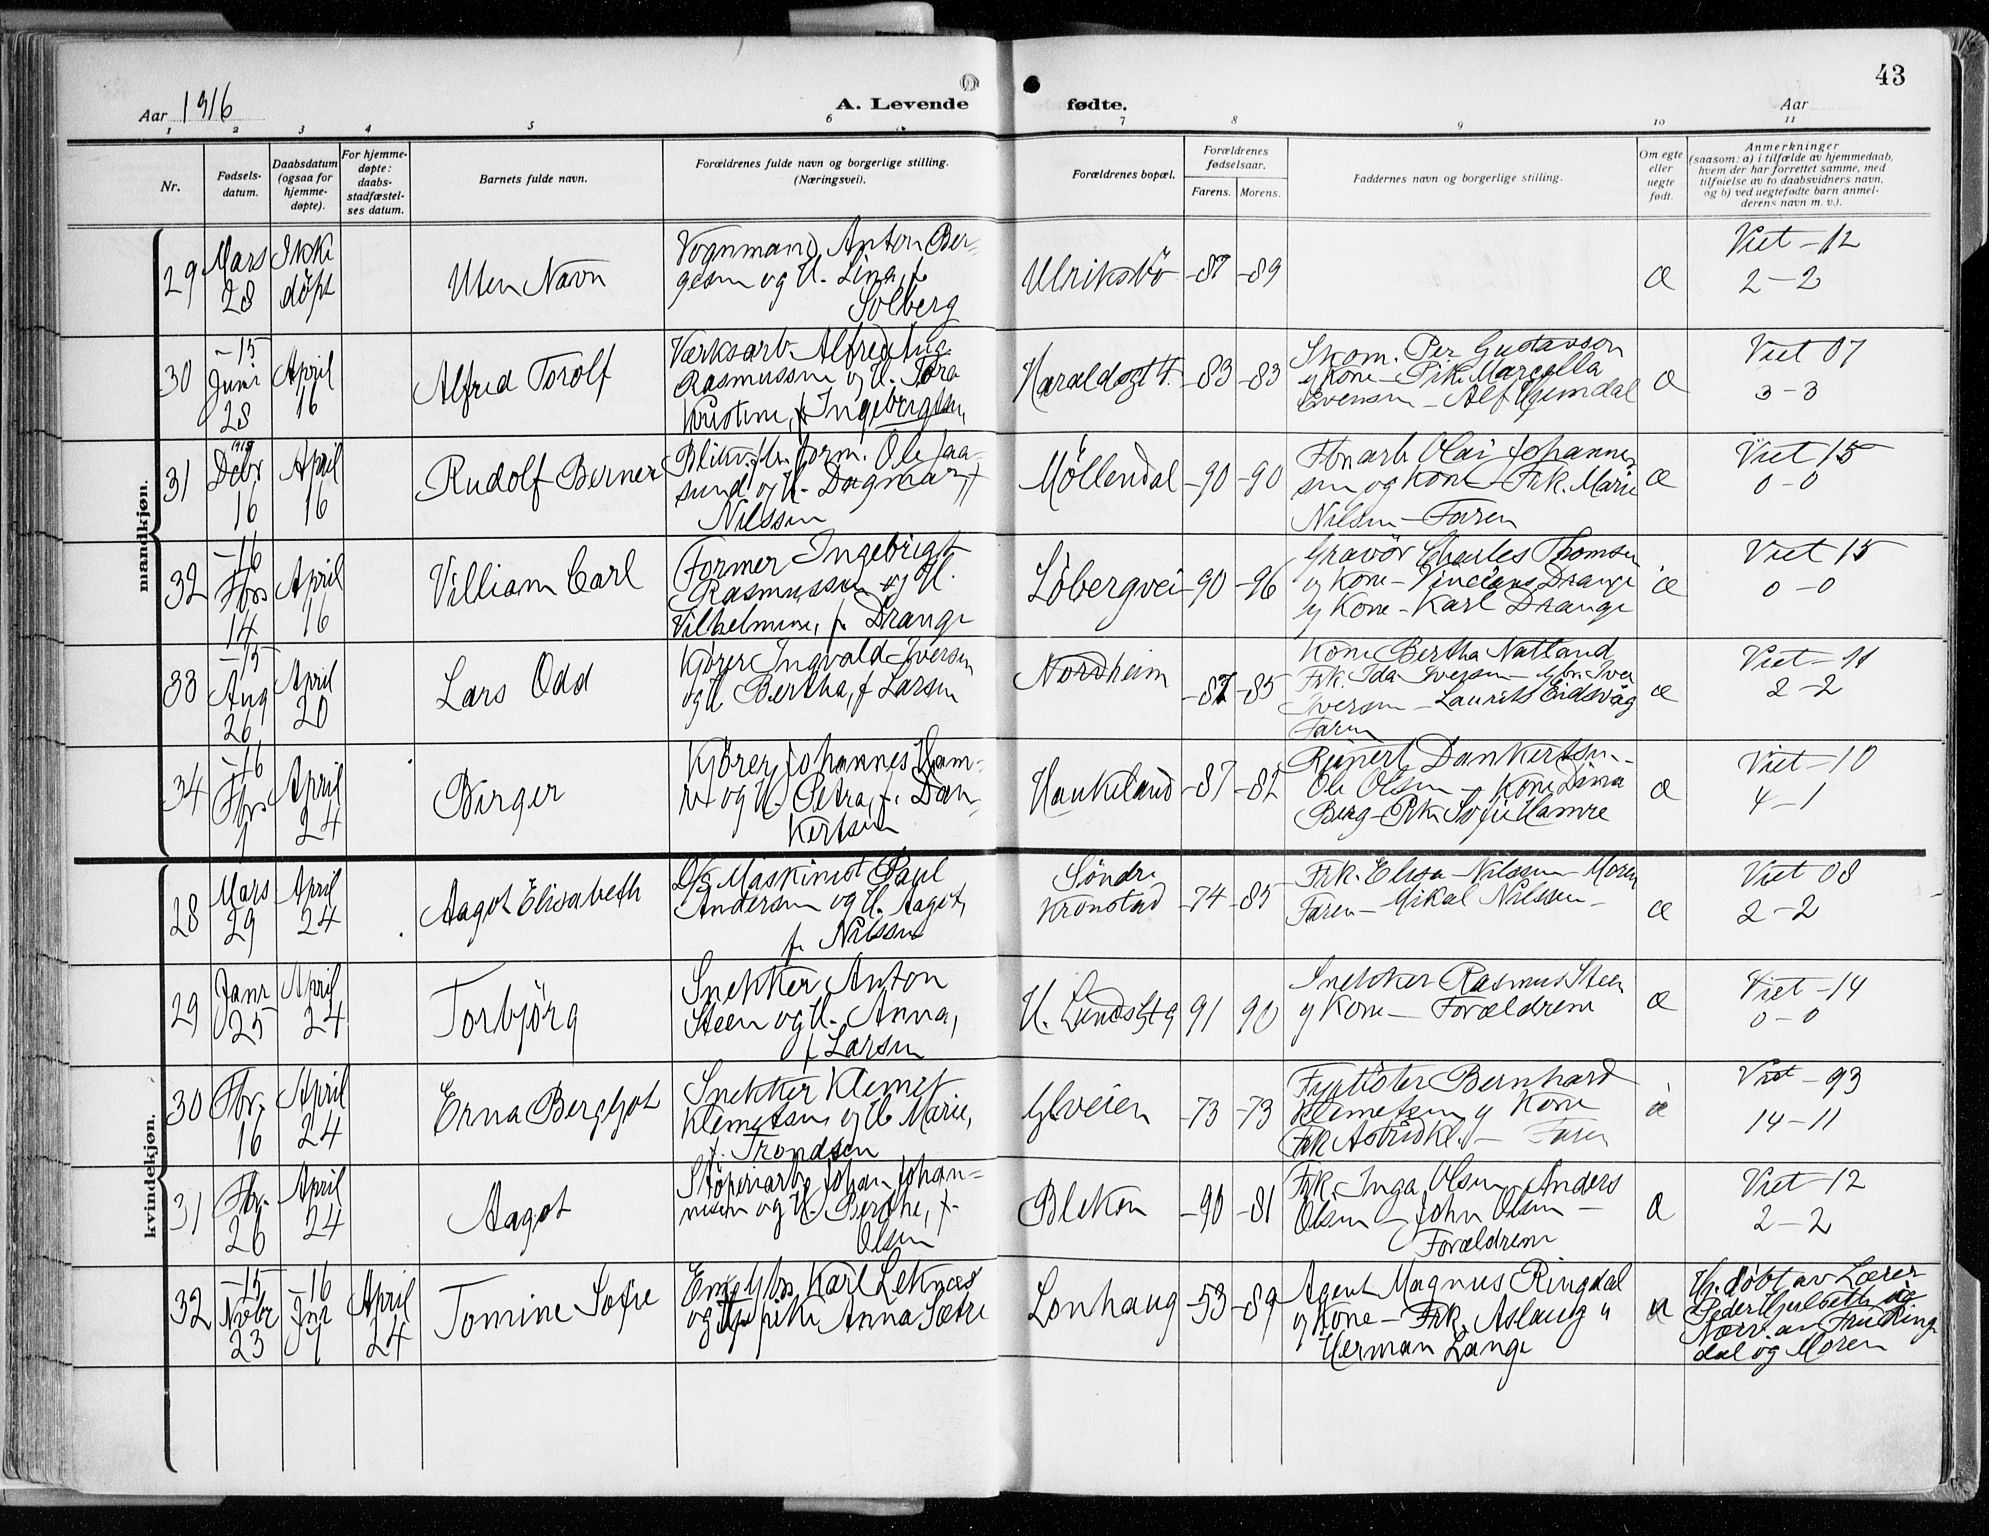 43
Aar 1916
A. Levende fødte.
Aar
1 2 3 4 5 6 7 8 9 10 11
Nr.
Fødsels-
datum.
Daabsdatum
(ogsaa for
hjemme-
døpte).
For hjemme-
døpte:
daabs-
stadfæstel-
ses datum.
Barnets fulde navn.
Forældrenes fulde navn og borgerlige stilling.
(Næringsvei).
Forældrenes bopæl.
Forældrenes
fødselsaar.
Farens. Morens.
Faddernes navn og borgerlige stilling.
Om egte
eller
uegte
født.
Anmerkninger
(saasom: a) i tilfælde av hjemmedaab,
hvem der har forrettet samme, med
tilføielse av to daabsvidners navn,
og b) ved uegtefødte barn anmel-
derens navn m. v.).
mandkjøn.
29
Mars
28
Ikke
døpt
Uten Navn
Vognmand Anton Ber-
gesen og H. Lina, f.
Solberg
Ulriksbö
-87 -89
æ
Viet -12
2-2
30
-15
Juni
28
April
16
Alfred Torolf
Værksarb. Alfred Aug.
Rasmussen og H. Tora
Kristine, f. Ingebrigtsen,
Haraldsgt
-83 -83
Skom. Per Gustavson
og Kone - Frk. Marcella
Evensen - Alf Gjendal
æ
Viet 07
3-3
31
1915
Decbr
16
April
16
Rudolf Berner
Ole Faa-
sund og H. Dagmar, f.
Nilssen
Möllendal
-90 -90
Fbnarb. Olai Johannes-
sen og Kone - Frk. Marie
Nilsen - Faren
æ
Viet 15
0-0
32
-16
Fbr
14
April
16
Villiam Carl
Former Ingebrigt
Rasmussen og H.
Vilhelmine, f. Drange
Löbergvei
-90 -96
Gravör Charles Thomsen
og Kone - Drange
og Kone - Karl Drange
æ
Viet 15
0-0
33
-15
Aug
26
April
20
Lars Odd
Kjörer Ingvald Iversen
og H. Bertha, f. Larsen
Nordheim
-85
Kone Bertha Natland
Frk. Ida Iversen - Gbr. Iver
Iversen - Laurits Eidsvåg
Faren
æ
Viet -11
2-2
34
-16
Fbr
1
April
24
Birger
Kjörer Johannes Ham-
re og H. Petra, f. Dan-
kertsen
Haukeland
-87 -82
Reinert Dankertsen -
Ole Olsen - Kone Dina
Berg - Frk. Sofie Hamre
æ
Viet -10
4-1
kvindekjøn.
28
Mars
29
April
24
Aagot Elisabeth
D/s Maskinist Paul
Andersen og H. Aagot,
f. Nilssen
Söndre
Kronstad
-74 -85
Frk. Elisa Nilssen - Moren
Faren - Mikal Nilssen -
æ
Viet 08
2-2
29
Janr
25
April
24
Torbjörg
Snekker Anton
Steen og H. Anna,
f. Larsen
H. Lundsgt 9
91 90
Snekker Rasmus Steen
og Kone - Forældrene
æ
Viet -14
0-0
30
Fbr.
16
April
24
Erna Bergljot
Snekker Klemet
Klemetsen og H. Marie,
f. Trondsen
Glveien
-73 -73
Fyrbøter Bernhard
Klemetsen og Kone
Frk. Astrid Kl. - Faren
æ
Viet -93
14-11
31
Fbr.
26
April
24
Aagot
Stöperiarb. Johan Johan-
nesen og H. Berthe, f.
Olsen
Bleken
-90 -81
Frk. Inga Olsen - Anders
Olsen - John Olsen -
Forældrene
æ
Viet -12
2-2
32
-15
Novbr
23
-16
Jnr
7
April
24
Tomine Sofie
Karl Leknes
og pike Anna Sætre
Lonhaug
-53 -89
Agent Magnus Ringdal
og Kone - Frk. Aslaug "
Herman Lange
Hj. döbt av Lærer
Peder
Nærv. av Fru Ring-
dal og Moren